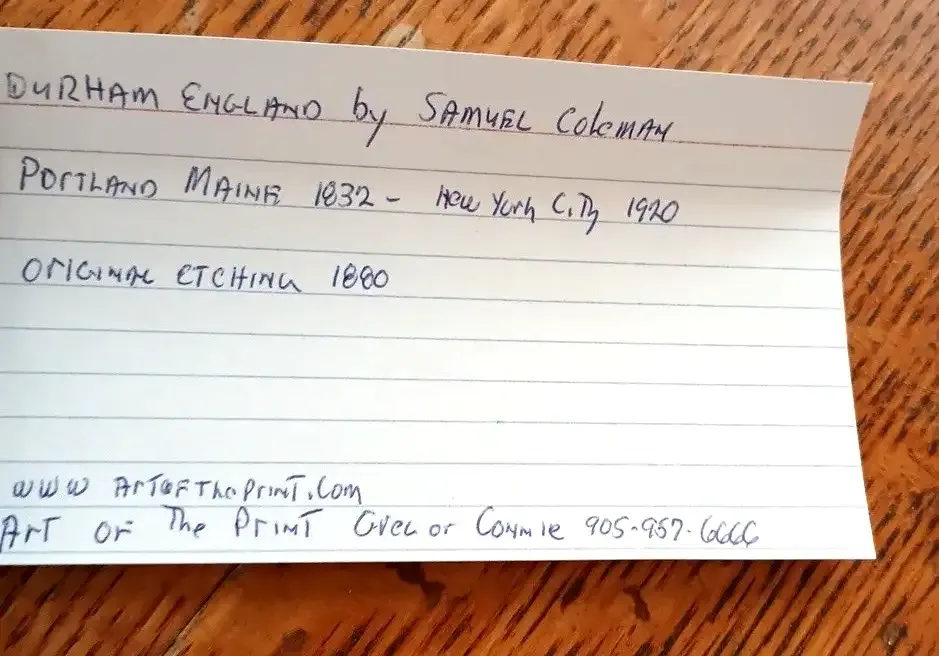 DURHAM ENGLAND by SAMUEL ColeMAN
PORTLAND MAINE 1832 - New York City 1920
ORIGINAL ETCHING 1880
WWW ARTOFThePrinT.Com
ART OF The PrinT Greg or Connie 905-957-6666